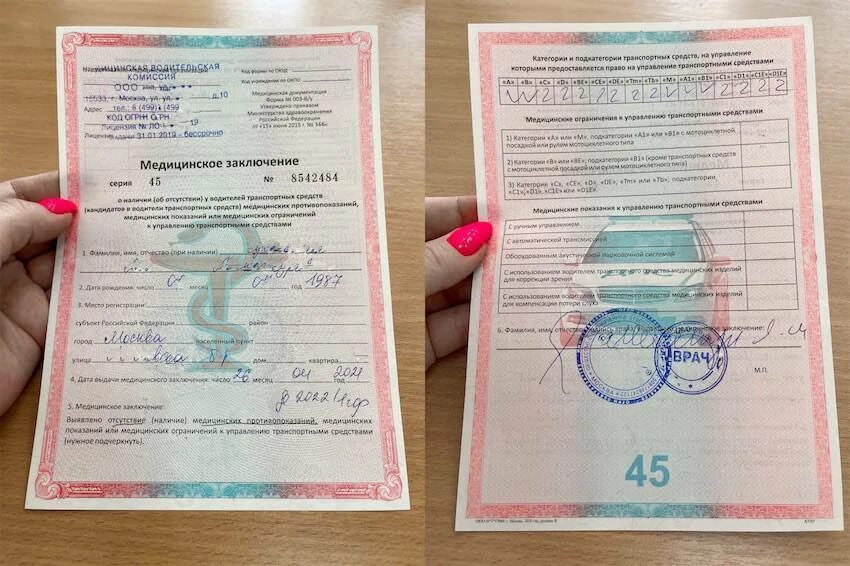 МЕДИЦИНСКАЯ ВОДИТЕЛЬСКАЯ
КОМИССИЯ
Код формы по ОКУД
Код учреждения по ОКПО
ООО
Медицинская документация
Форма № 003-В/у
Утверждена приказом
Министерства здравоохранения
Российской Федерации
от «15» июня 2015 г. № 344н
г. Москва, ул.
д.10
Адрес тел.: 8 (499)
КОД ОГРН
Лицензия № ЛО-
19
Лицензия выдачи 31.01.2019 - бессрочно
Медицинское заключение
серия 45 № 8542484
о наличии (об отсутствии) у водителей транспортных средств
(кандидатов в водители транспортных средств) медицинских противопоказаний,
медицинских показаний или медицинских ограничений
к управлению транспортными средствами
1. Фамилия, имя, отчество (при наличии)
2. Дата рождения: число 04 месяц 04 год 1987
3. Место регистрации:
субъект Российской Федерации район
город Москва населенный пункт
улица дом квартира
4. Дата выдачи медицинского заключения: число 26 месяц 04 год 2021
до 2022/
5. Медицинское заключение:
Выявлено отсутствие (наличие) медицинских противопоказаний, медицинских
показаний или медицинских ограничений к управлению транспортными средствами
(нужное подчеркнуть).
Категории и подкатегории транспортных средств, на управление
которыми предоставляется право на управление транспортными средствами
«A» «B» «C» «D» «BE» «CE» «DE» «Tm» «Tb» «M» «A1» «B1» «C1» «D1» «C1E» «D1E»
Медицинские ограничения к управлению транспортными средствами
1) Категории «A» или «M», подкатегории «A1» или «B1» с мотоциклетной
посадкой или рулем мотоциклетного типа
2) Категории «B» или «BE», подкатегории «B1» (кроме транспортных средств
с мотоциклетной посадкой или рулем мотоциклетного типа)
3) Категории «C», «CE», «D», «DE», «Tm» или «Tb», подкатегории
«C1», «D1», «C1E» или «D1E»
Медицинские показания к управлению транспортными средствами
С ручным управлением
С автоматической трансмиссией
Оборудованным акустической парковочной системой
С использованием водителем транспортного средства медицинских изделий
для коррекции зрения
С использованием водителем транспортного средства медицинских изделий
для компенсации потери слуха
6. Фамилия, имя, отчество, подпись врача, выдавшего медицинское заключение:
ВРАЧ
М.П.
45